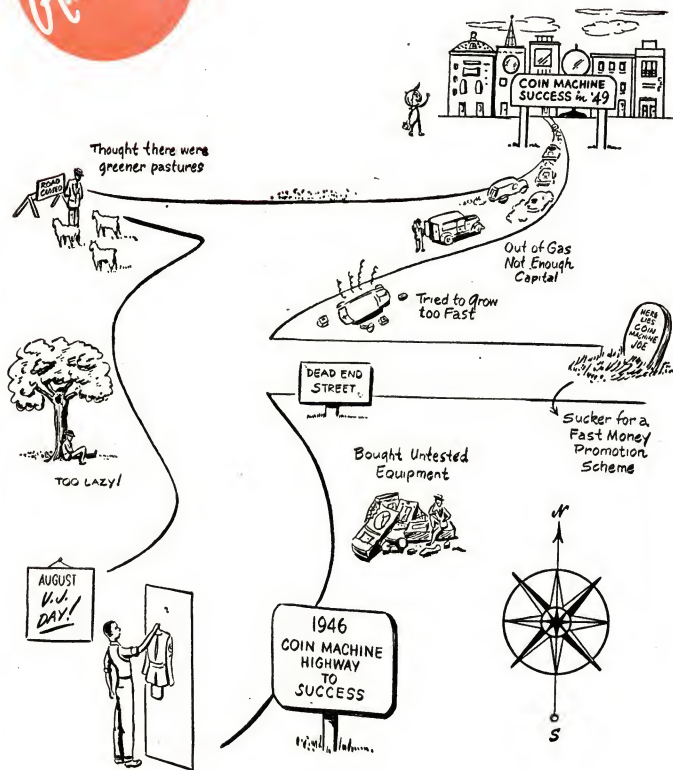 COIN MACHINE
SUCCESS in '49
Thought there were
greener pastures
ROAD
CLOSED
Out of Gas
Not Enough
Capital
Tried to Grow
too Fast
HERE
LIES
COIN
MACHINE
JOE
DEAD END
STREET
Sucker for a
Fast Money
Promotion
Scheme
TOO LAZY!
Bought Untested
Equipment
N
AUGUST
V.J.
DAY!
1946
COIN MACHINE
HIGHWAY
TO
SUCCESS
S